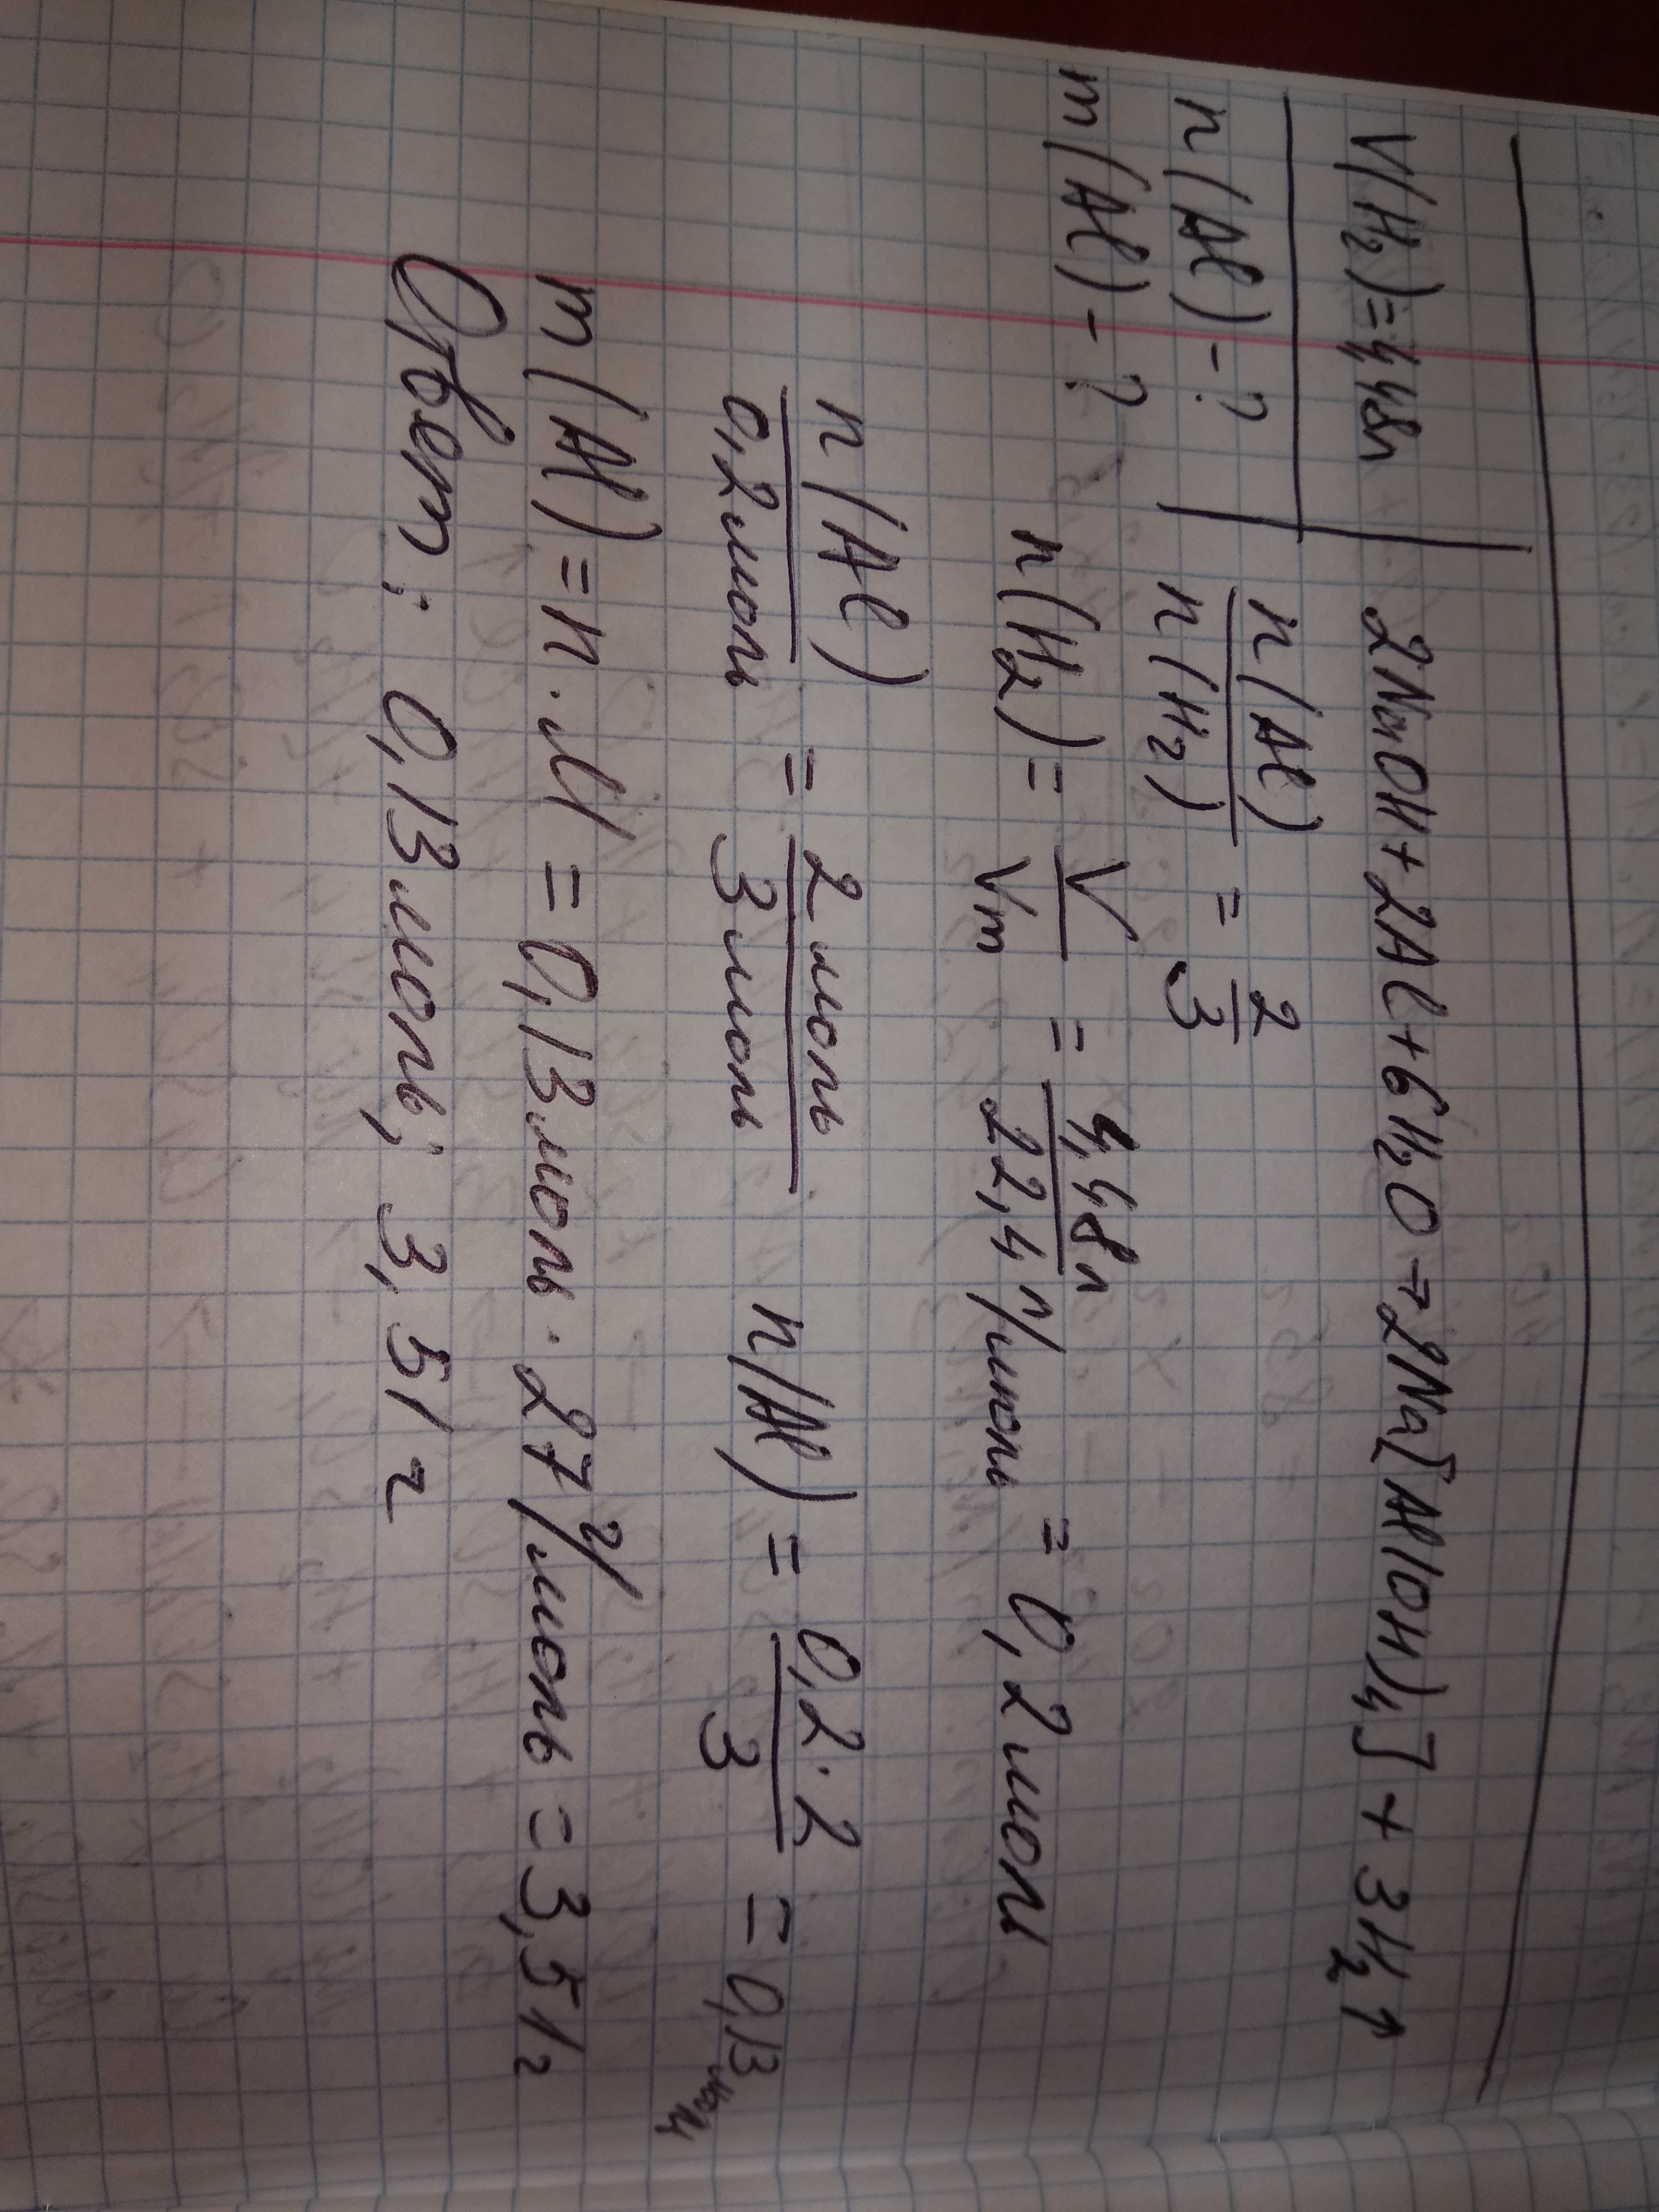 V(H₂)=4,48л
n(Al)-?
m(Al)-?
2NaOH+2Al+6H₂O→2Na[Al(OH)₄]+3H₂↑
n(Al)/n(H₂) = 2/3
n(H₂)= V/Vm = 4,48л/22,4 л/моль = 0,2 моль
n(Al)/0,2моль = 2 моль/3 моль n(Al) = 0,2·2/3 = 0,13 моль
m(Al)=n·M = 0,13моль·27 г/моль = 3,51г
Ответ: 0,13 моль; 3,51г